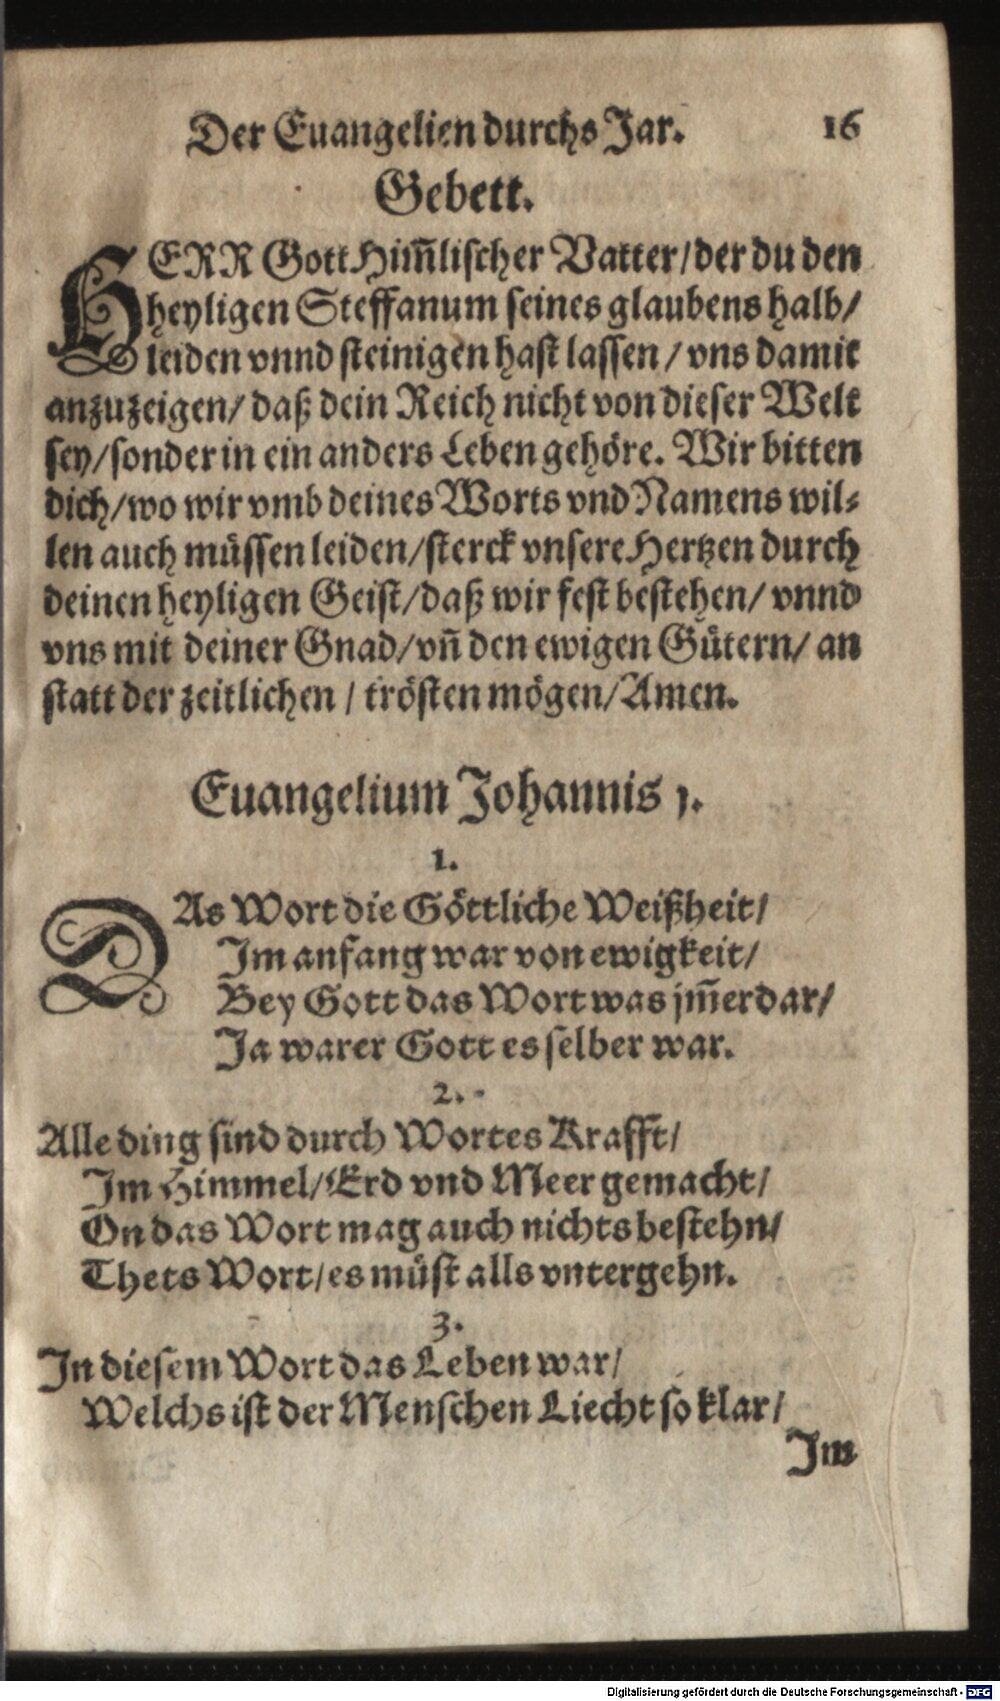 Der Euangelien durchs Jar. 16
Gebett.
HERR Gott Him̃lischer Vatter/der du den
heyligen Steffanum seines glaubens halb/
leiden vnnd steinigen hast lassen/vns damit
anzuzeigen/daß dein Reich nicht von dieser Welt
sey/sonder in ein anders Leben gehöre. Wir bitten
dich/wo wir vmb deines Worts vnd Namens wil⸗
len auch müssen leiden/sterck vnsere Hertzen durch
deinen heyligen Geist/daß wir fest bestehen/vnnd
vns mit deiner Gnad/vñ den ewigen Gütern/an
statt der zeitlichen/trösten mögen/Amen.
Euangelium Johannis j.
1.
DAs Wort die Göttliche Weißheit/
Im anfang war von ewigkeit/
Bey Gott das Wort was jm̃erdar/
Ja warer Gott es selber war.
2.
Alle ding sind durch Wortes Krafft/
Im Himmel/Erd vnd Meer gemacht/
On das Wort mag auch nichts bestehn/
Thets Wort/es müst alls vntergehn.
3.
In diesem Wort das Leben war/
Welchs ist der Menschen Liecht so klar/
Im
Digitalisierung gefördert durch die Deutsche Forschungsgemeinschaft - DFG